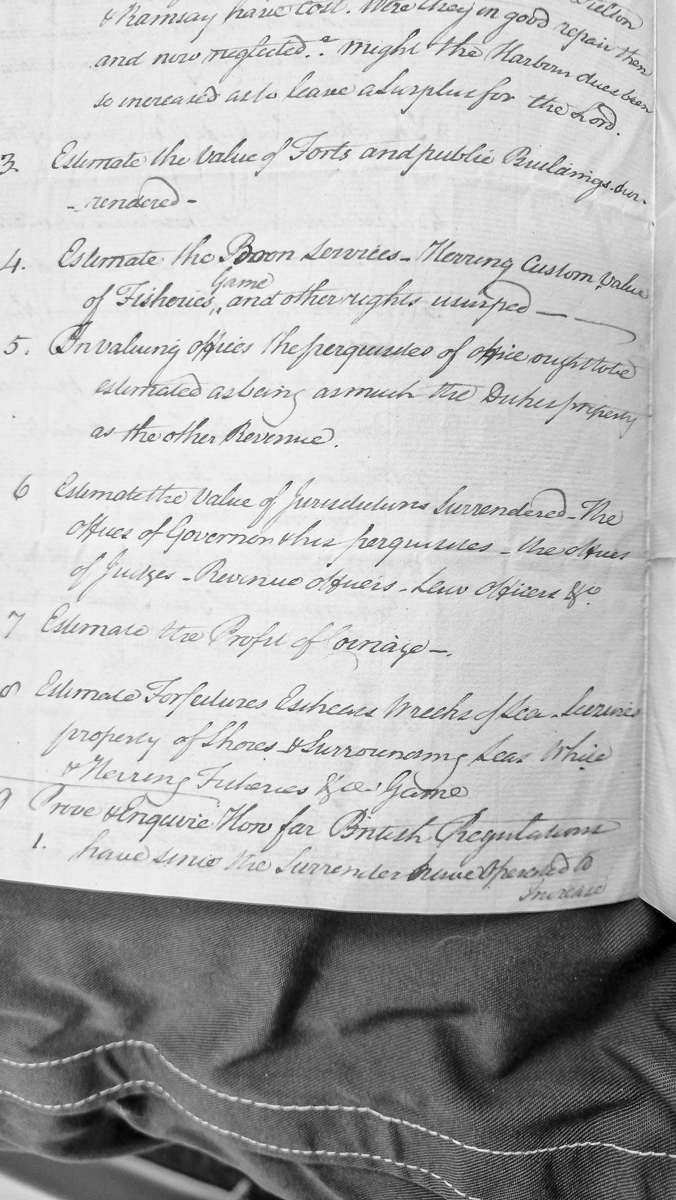 & Ramsay have cost. Were they in good repair then
and now neglected. might the Harbour dues been
so increased as to leave a Surplus for the Lord.
3 Estimate the Value of Forts and public Buildings Sur-
-rendered-
4. Estimate the Boon Services - Herring Custom, Value
of Fisheries, Game and other rights usurped —
5. In valuing offices the perquisites of office ought to be
estimated as being as much the Dukes property
as the other Revenue.
6 Estimate the Value of Jurisdictions Surrendered - The
offices of Governor & his perquisites - the offices
of Judges - Revenue officers - Law Officers &c.
7 Estimate the Profit of Coinage —.
8 Estimate Forfeitures Escheats Wrecks of Sea
property of Shores & Surrounding Seas White
& Herring Fisheries &ca Game
9 Prove & Enquire How far British Regulations
1. have since the Surrender have operated to
Increase